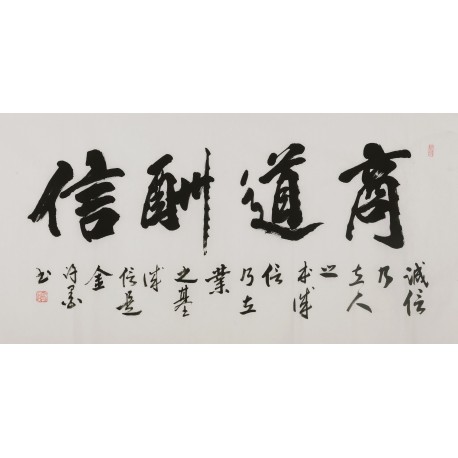 商道酬信
诚信
乃
立人
之
本诚
信
乃立
业
之基
诚
信是
金
书